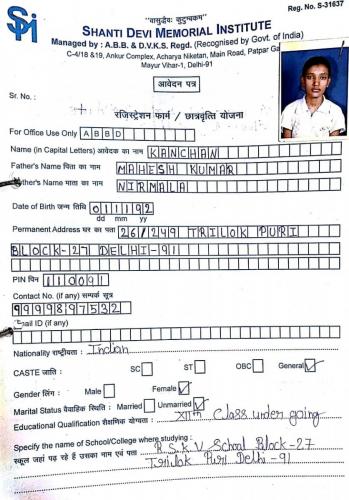 "वासुद्धैवः कुटुम्बकम"
Reg. No. S-31637
SHANTI DEVI MEMORIAL INSTITUTE
Managed by : A.B.B. & D.V.K.S. Regd. (Recognised by Govt. of India)
C-4/18 &19, Ankur Complex, Acharya Niketan, Main Road, Patpar
Mayur Vihar-1, Delhi-91
आवेदन पत्र
Sr. No. :
रजिस्ट्रेशन फार्म / छात्रवृत्ति योजना
For Office Use Only A B B D
Name (in Capital Letters) आवेदक का नाम KANCHAN
Father's Name पिता का नाम MAHESH KUMAR
other's Name माता का नाम NIRMALA
Date of Birth जन्म तिथि 011192
dd mm yy
Permanent Address घर का पता 26/249 TRILOK PURI
BLOCK-27 DELHI-91
PIN पिन 110091
Contact No. (if any) सम्पर्क सूत्र
9999897532
Email ID (if any)
Nationality राष्ट्रीयता : Indian
CASTE जाति : SC ST OBC General ✓
Gender लिंग : Male Female ✓
Marital Status वैवाहिक स्थिति : Married Unmarried ✓
Educational Qualification शैक्षणिक योग्यता : XIIth Class under going
Specify the name of School/College where studying :
स्कूल जहां पढ़ रहे हैं उसका नाम एवं पता R.S.K.V School Block-27
Trilok Puri Delhi-91